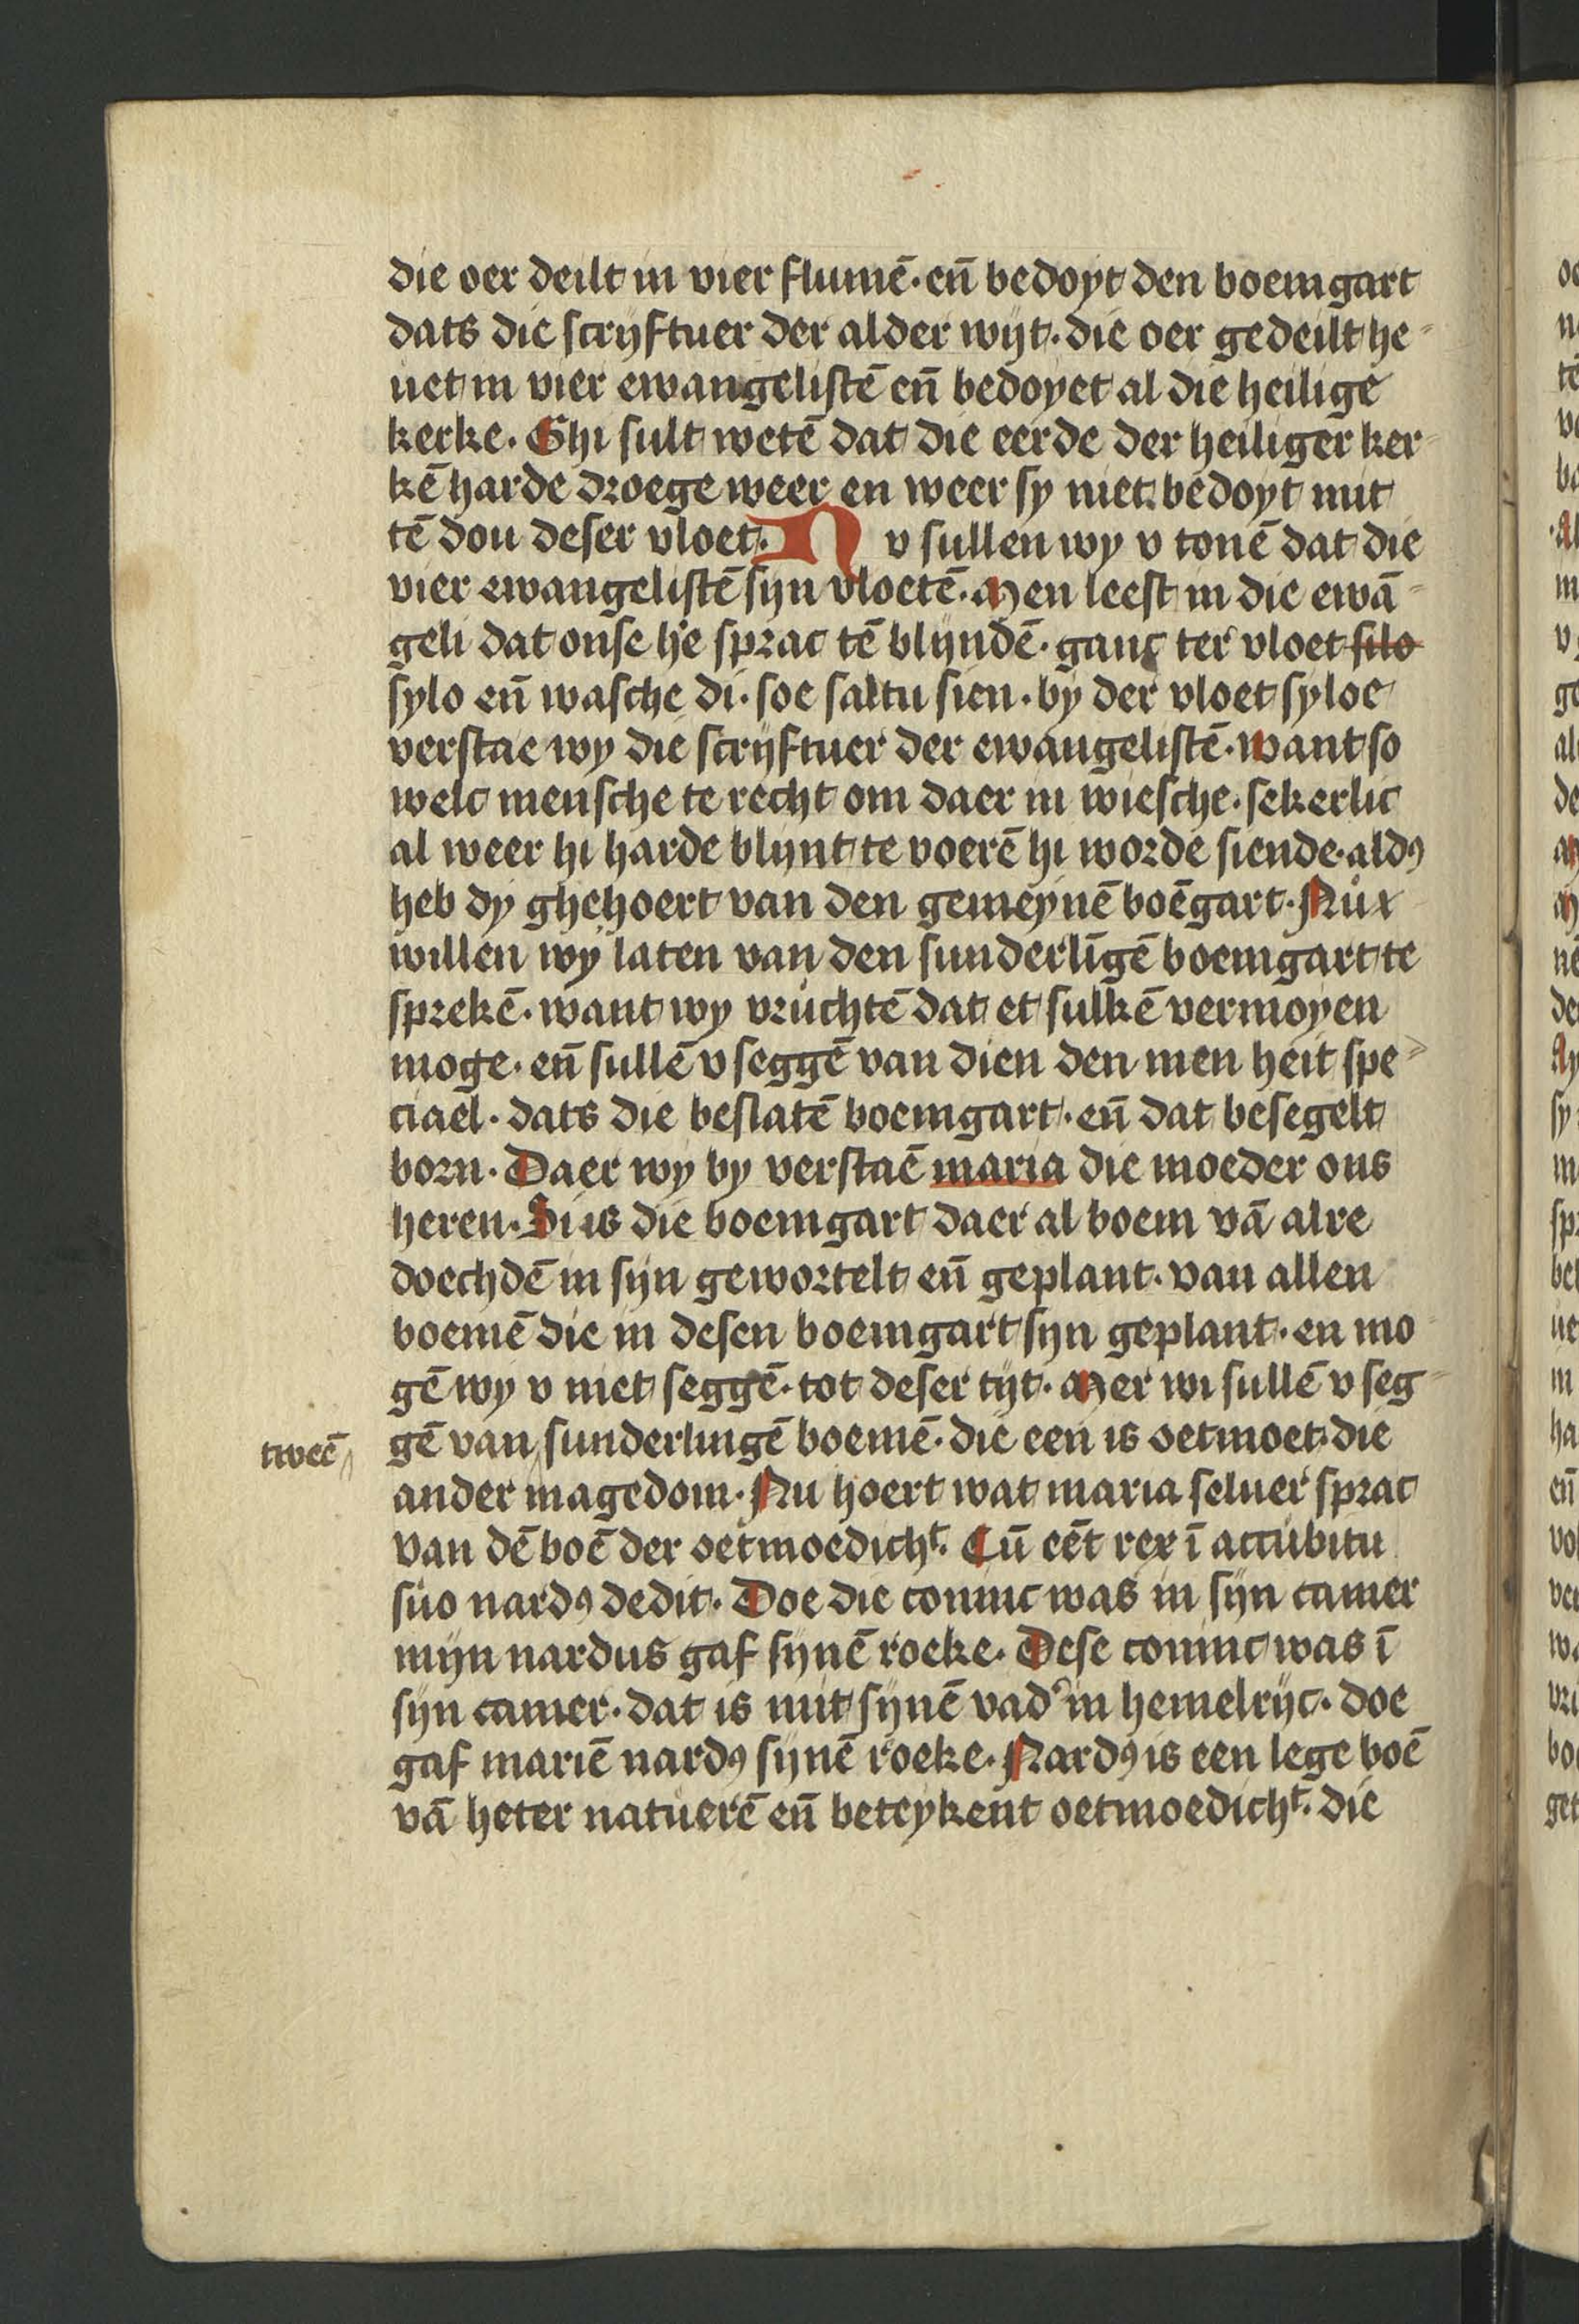 die oer deilt in vier flumē· en̄ bedoyt den boemgart
dats die scryftuer der alder wijt· die oer gedeilt he-
uet in vier ewangelistē en̄ bedoyet al die heilige
kerke· Ghi sult wetē dat die eerde der heiliger ker-
kē harde droege weer en weer sy niet bedoyt mit
tē dou deser vloet· Nv sullen wy v tonē dat die
vier ewangelistē sijn vloetē· Men leest in die ewā-
geli dat onse he sprac tē blijndē· ganc ter vloet silo
sylo en̄ wasche di· soe saltu sien· by der vloet syloe
verstae wy die scrijftuer der ewangelistē· want so
welc mensche te recht om daer in wiesche· sekerlic
al weer hi harde blijnt te voerē hi worde siende· aldꝯ
heb dy ghehoert van den gemeynē boēgart· Nu
willen wy laten van den sunderlīgē boemgart te
sprekē· want wy vruchtē dat et sulkē vermoyen
moge· en̄ sullē v seggē van dien den men heit spe-
ciael· dats die beslatē boemgart· en̄ dat besegelt
born· Daer wy by verstaē maria die moeder ons
heren· Si is die boemgart daer al boem vā alre
doechdē in sijn gewortelt en̄ geplant· van allen
boemē die in desen boemgart sijn geplant· en mo-
gē wy v niet seggē· tot deser tijt· Mer wi sullē v seg-
tweē gē van sunderlingē boemē· die een is oetmoet· die
ander magedom· Nu hoert wat maria seluer sprac
van dē boē der oetmoedicht· Cū eēt rex ī accubitu
suo nardꝯ dedit· Doe die coninc was in sijn camer
mijn nardus gaf sijnē roeke· Dese coninc was ī
sijn camer· dat is mit sijnē vad' in hemelrijc· doe
gaf mariē nardꝯ sijnē roeke· Nardꝯ is een lege boē
vā heter natuerē en̄ beteykent oetmoedicht· die